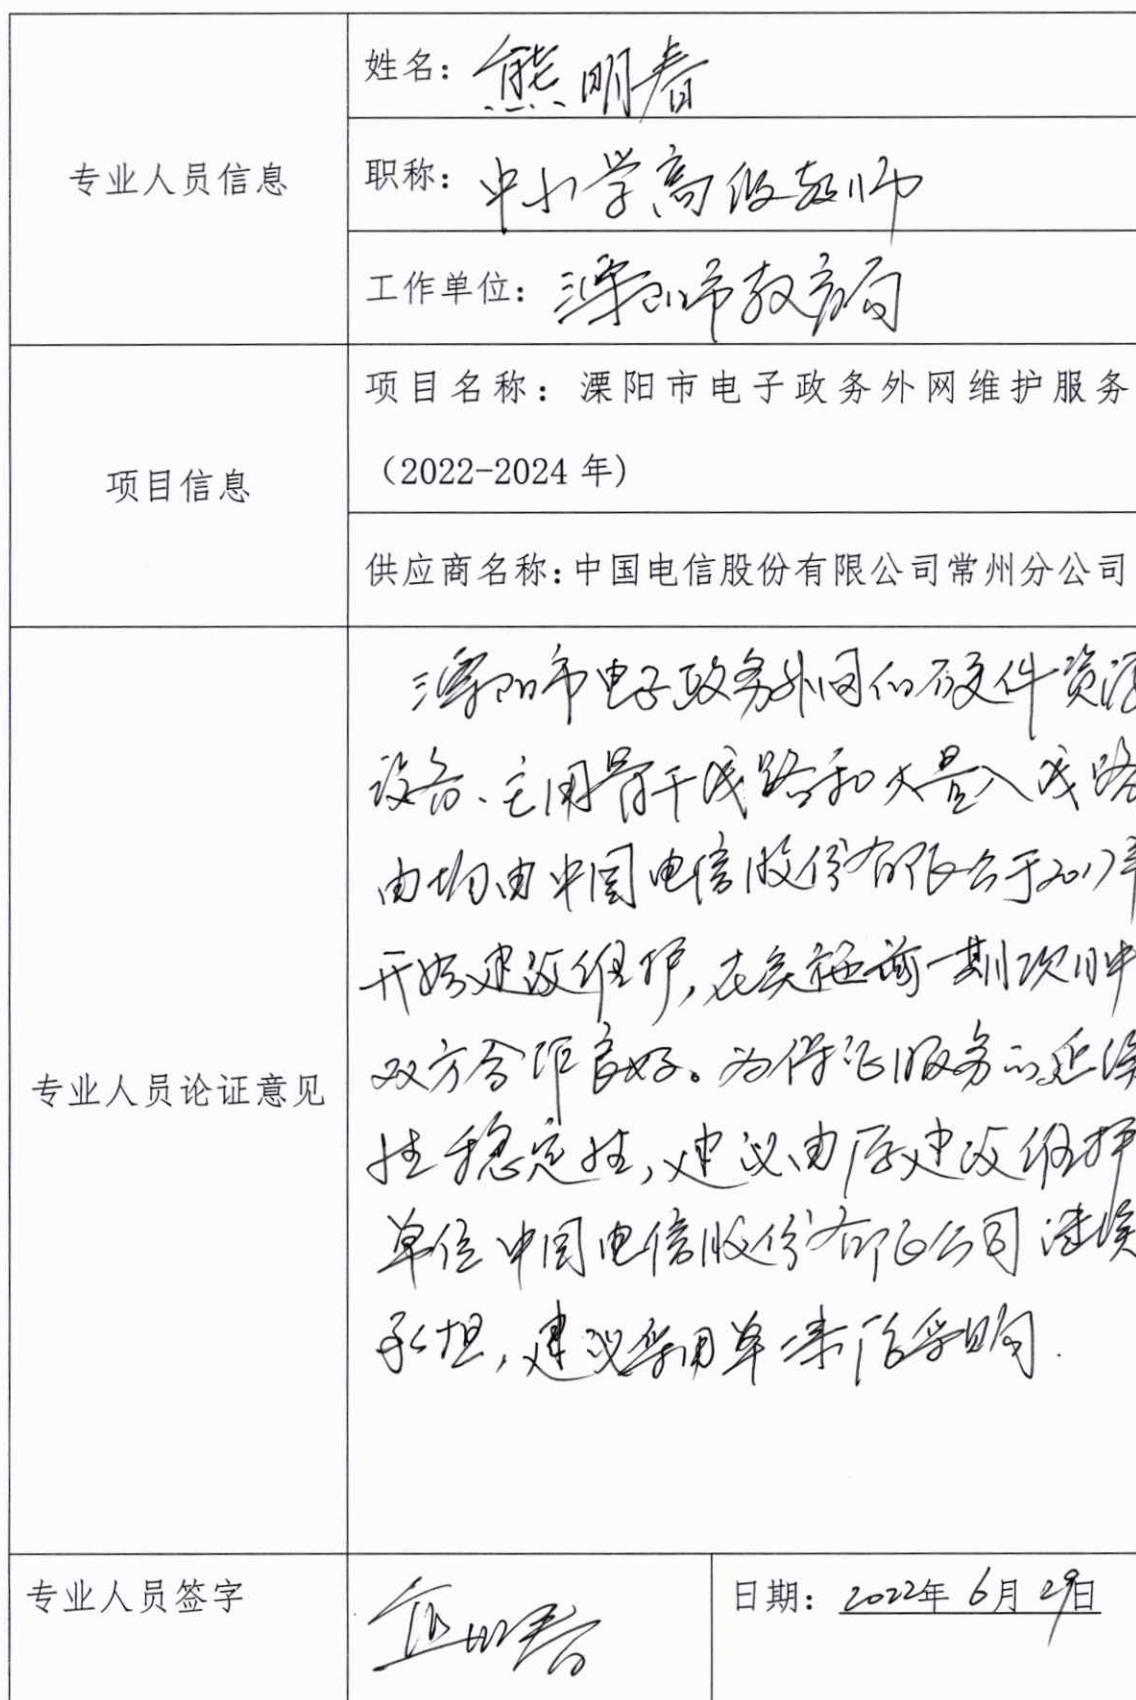 专业人员信息
姓名：熊明春
职称：中小学高级教师
工作单位：溧阳市教育局
项目信息
项目名称：溧阳市电子政务外网维护服务
（2022-2024 年）
供应商名称：中国电信股份有限公司常州分公司
专业人员论证意见
溧阳市电子政务外网的硬件资源
设备、主用骨干线路和大量入线路
由均由中国电信股份有限公于2017年
开始建设维护，在实施前一期项目中
双方合作良好。为保证服务的延续
性稳定性，建议由原建设维护
单位中国电信股份有限公司继续
承担，建议采用单一来源采购.
专业人员签字
熊明春
日期：2022年 6月 29日